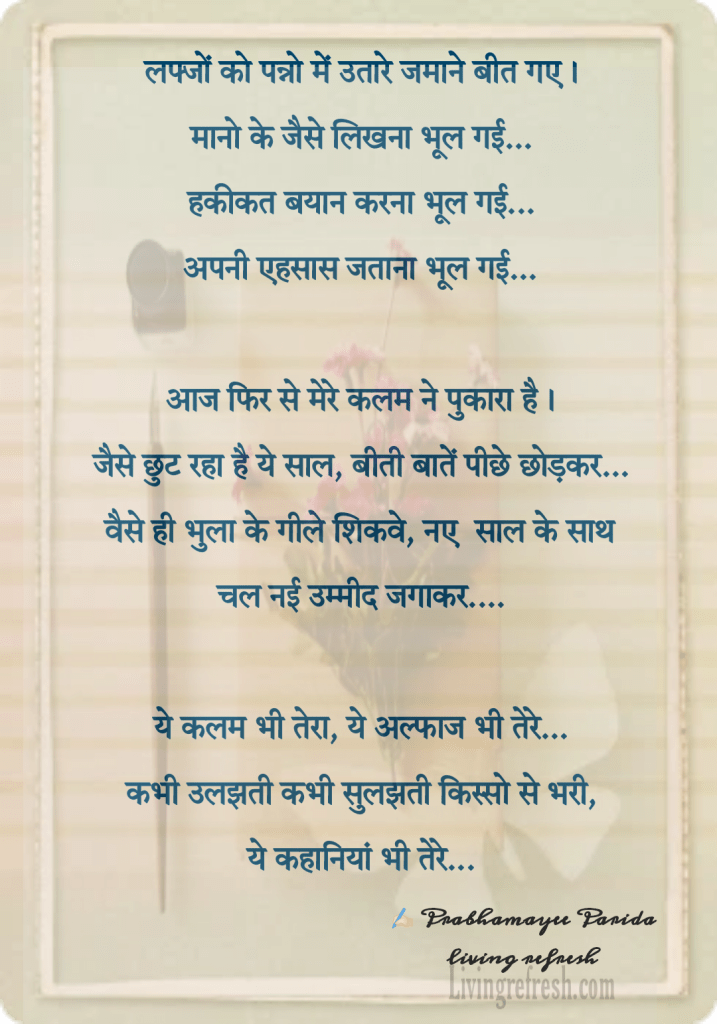 लफ्जों को पन्नो में उतारे जमाने बीत गए ।
मानो के जैसे लिखना भूल गई...
हकीकत बयान करना भूल गई...
अपनी एहसास जताना भूल गई...
आज फिर से मेरे कलम ने पुकारा है ।
जैसे छुट रहा है ये साल, बीती बातें पीछे छोड़कर...
वैसे ही भुला के गीले शिकवे, नए साल के साथ
चल नई उम्मीद जगाकर....
ये कलम भी तेरा, ये अल्फाज भी तेरे...
कभी उलझती कभी सुलझती किस्सो से भरी,
ये कहानियां भी तेरे...
✍🏻 Prabhamayee Parida
living refresh
Livingrefresh.com